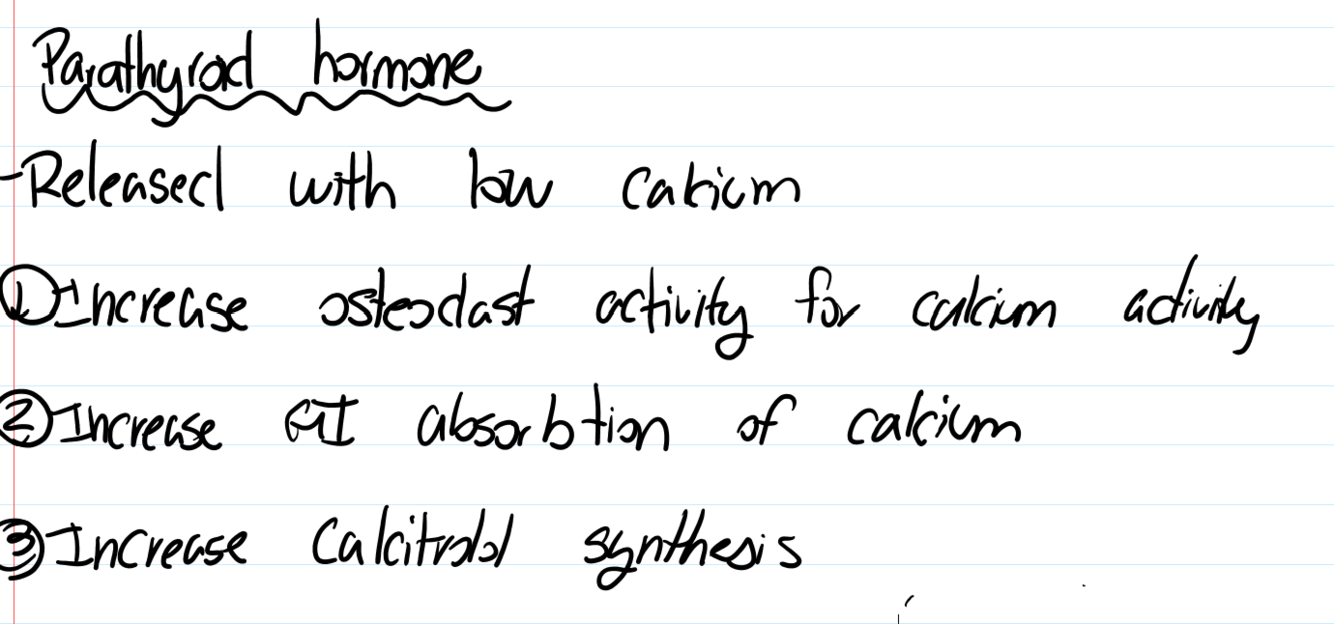 Parathyroid hormone
-Released with low calcium
① Increase osteoclast activity for calcium activity
② Increase GI absorbtion of calcium
③ Increase Calcitrol synthesis